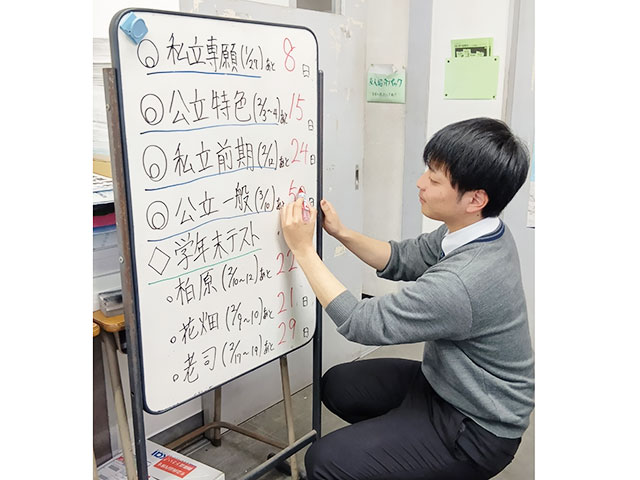 ◎私立専願(1/27)あと8日
◎公立特色(2/3~4)あと15日
◎私立前期(2/12)あと24日
◎公立一般(3/10)あと5 日
◇学年末テスト
○柏原(2/10~12)あと22日
○花畑(2/9~10)あと21日
○老司(2/17~19)あと29日